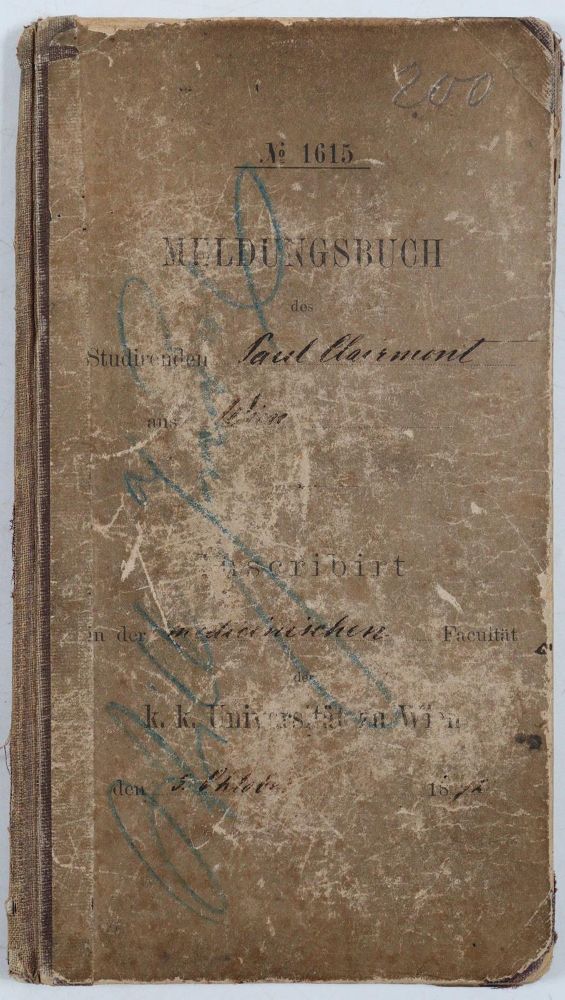 200
№ 1615
MELDUNGSBUCH
des
Studirenden Paul Clairmont
aus Wien
Inscribirt
in der medicinischen Facultät
der
k. k. Universität zu Wien
den 5. Oktober 18